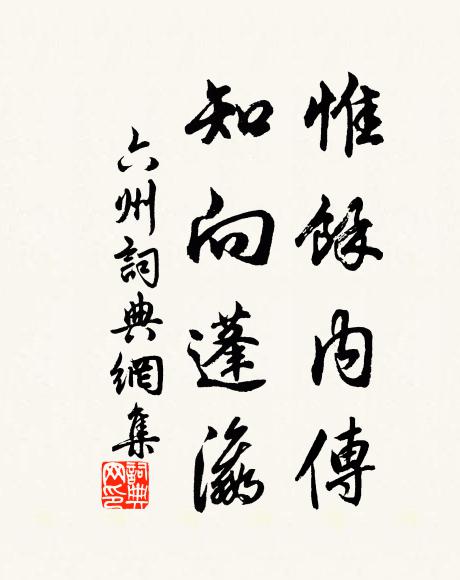 惟餘内傳
知向蓬瀛
六州詞典網集
詞典网印